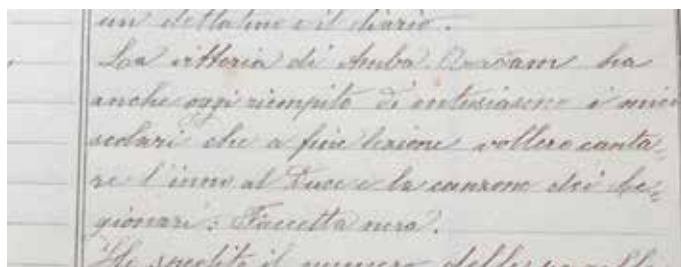 un dettatino e il diario.
La vittoria di Amba Aradam ha
anche oggi riempito di entusiasmo i miei
scolari che a fine lezione vollero canta=
re l'inno al Duce e la canzone dei Le=
gionari: Faccetta nera.
Ho spedito il numero